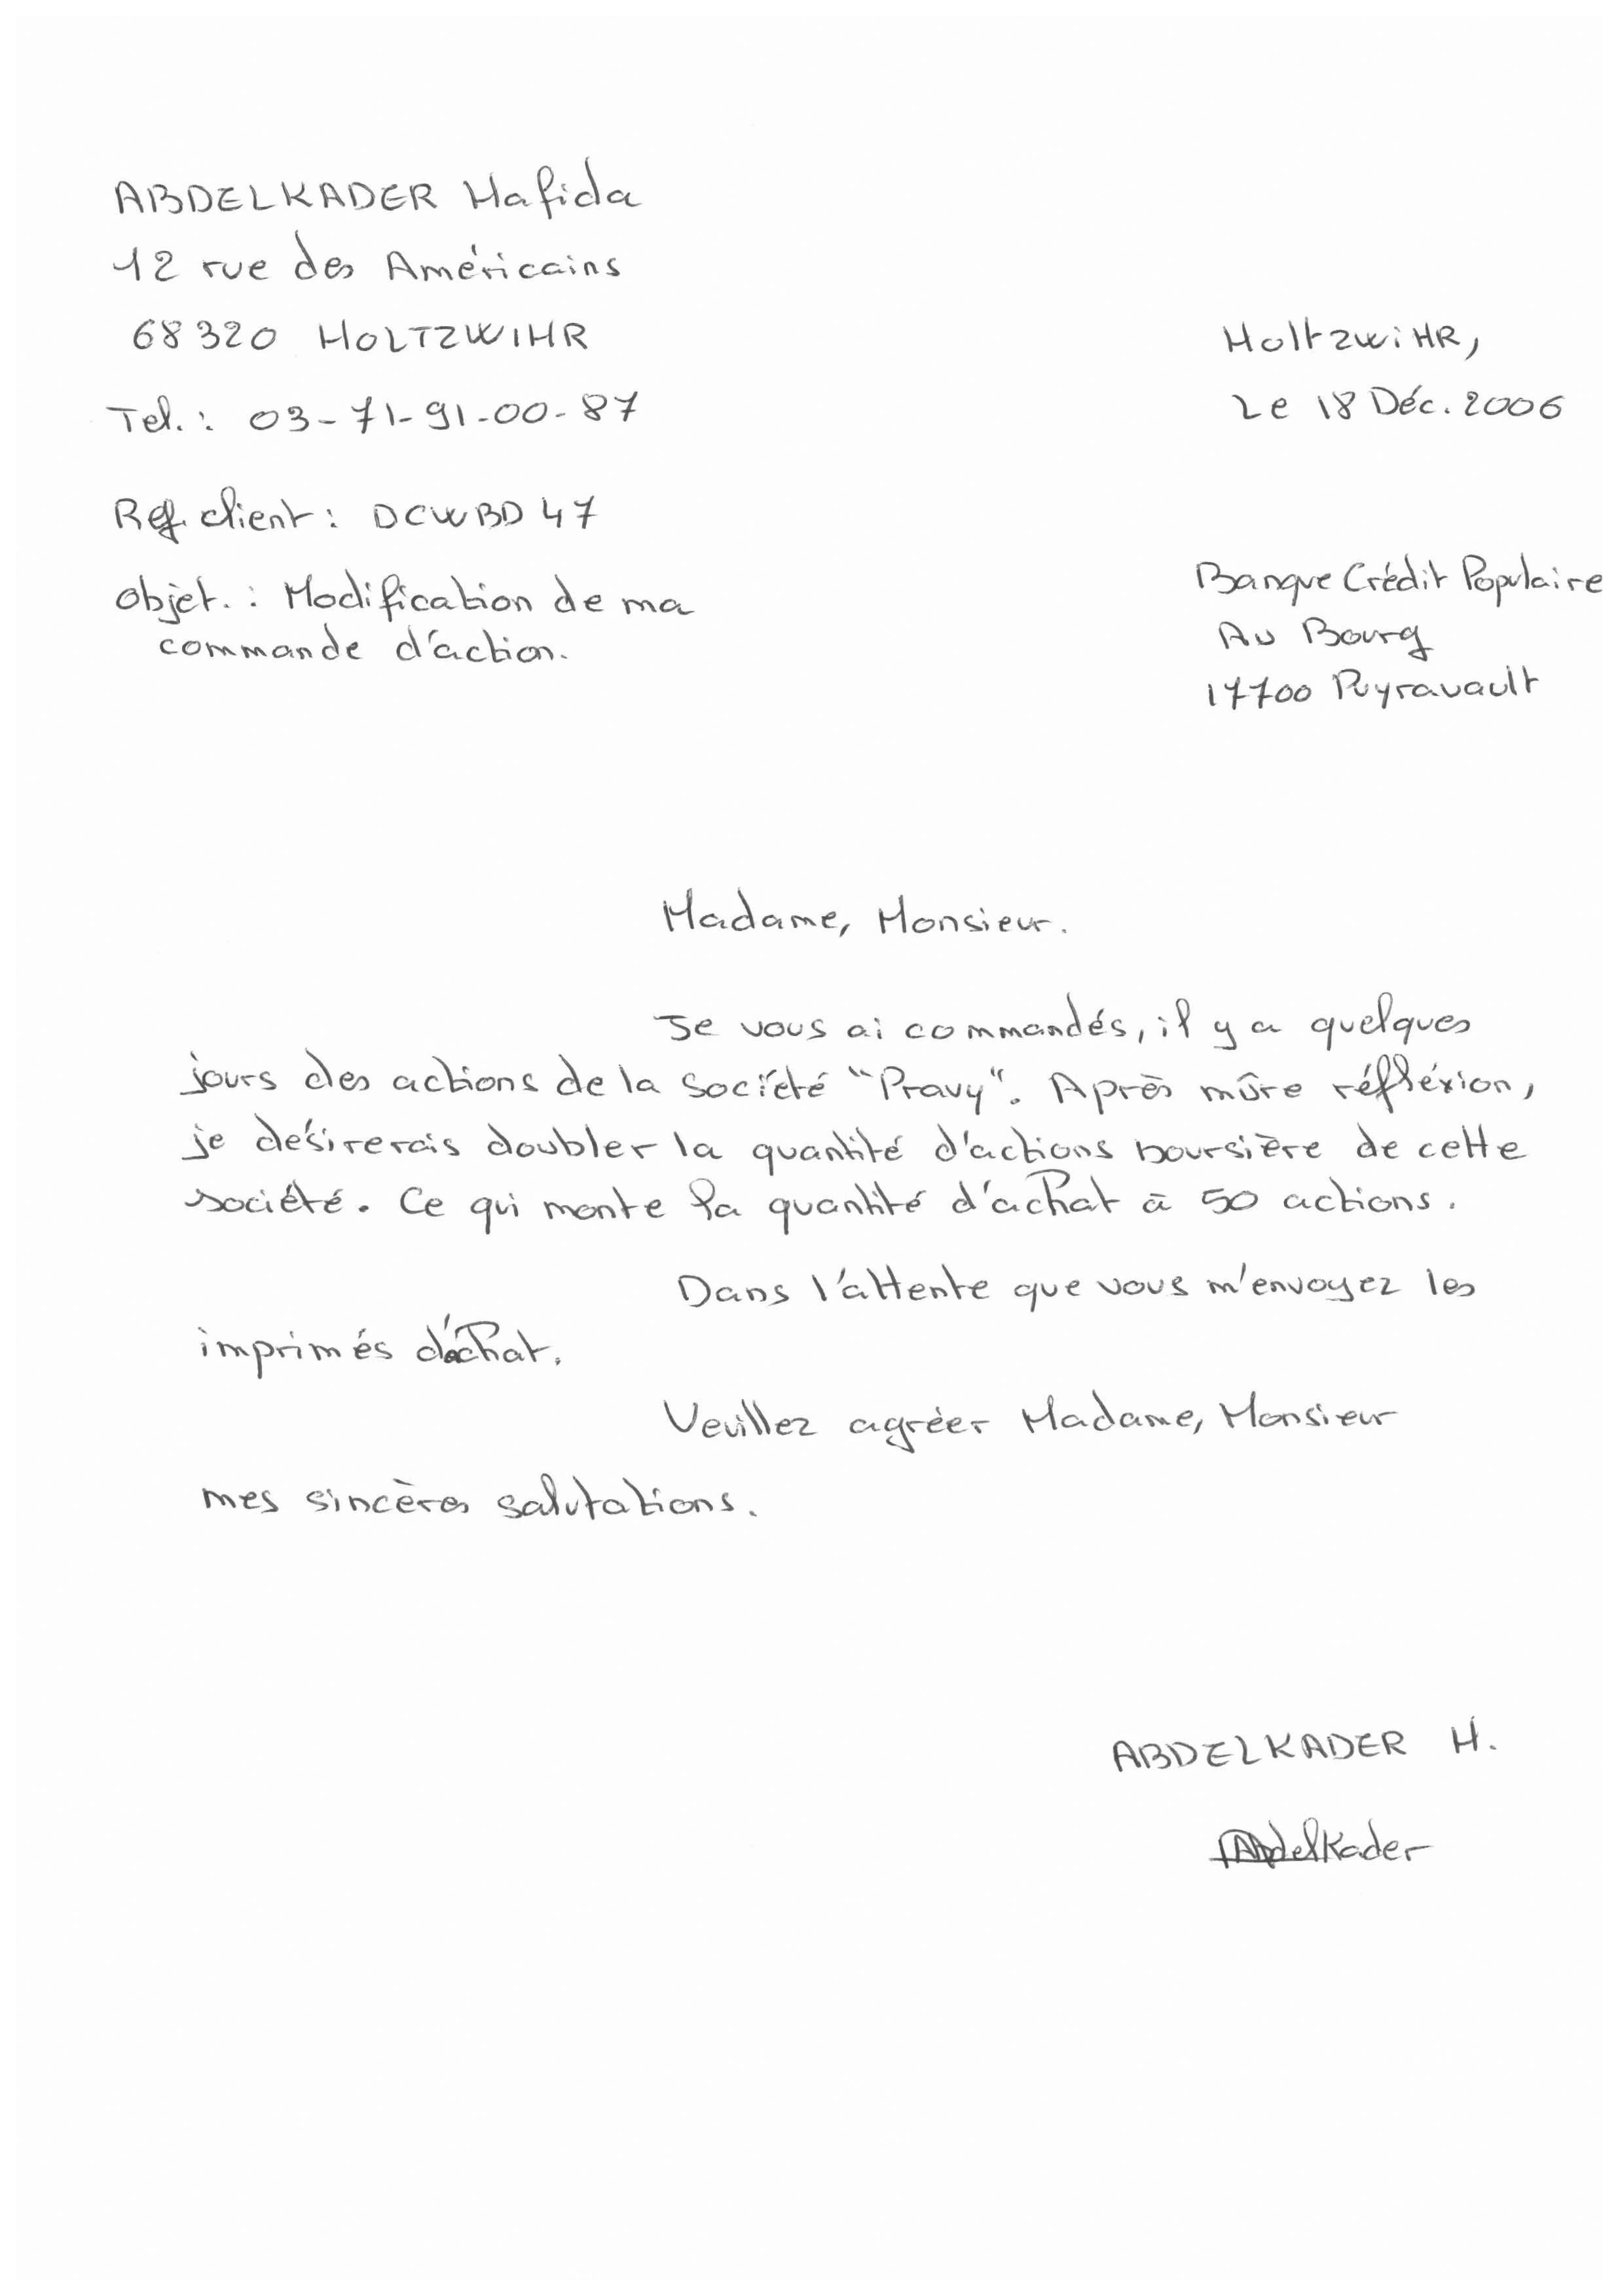 ABDELKADER Hafida
12 rue des Américains
68320 HOLTZWIHR
Tel. : 03-71-91-00-87
Holtzwihr,
Le 18 Déc. 2006
Ref. client : DCWBD 47
Objet. : Modification de ma
commande d'action.
Banque Crédit Populaire
Au Bourg
17700 Puyravault
Madame, Monsieur.
Je vous ai commandés, il y a quelques
jours des actions de la société "Pravy". Après mûre réfléxion,
je désirerais doubler la quantité d'actions boursière de cette
société. Ce qui monte la quantité d'achat à 50 actions.
Dans l'attente que vous m'envoyez les
imprimés d'achat.
Veuillez agréer Madame, Monsieur
mes sincères salutations.
ABDELKADER H.
Abdelkader